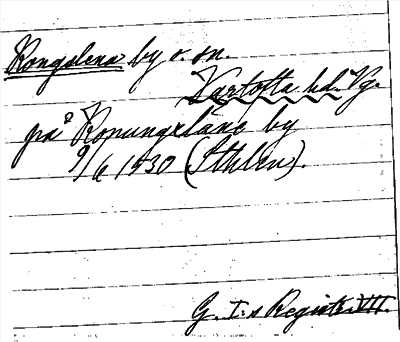 Kongslena by o. sn.
Vartofta hd. Vg.
på Konungxlåne by
9/6 1430 (Sthlm).
G. I:s Registr. VII.